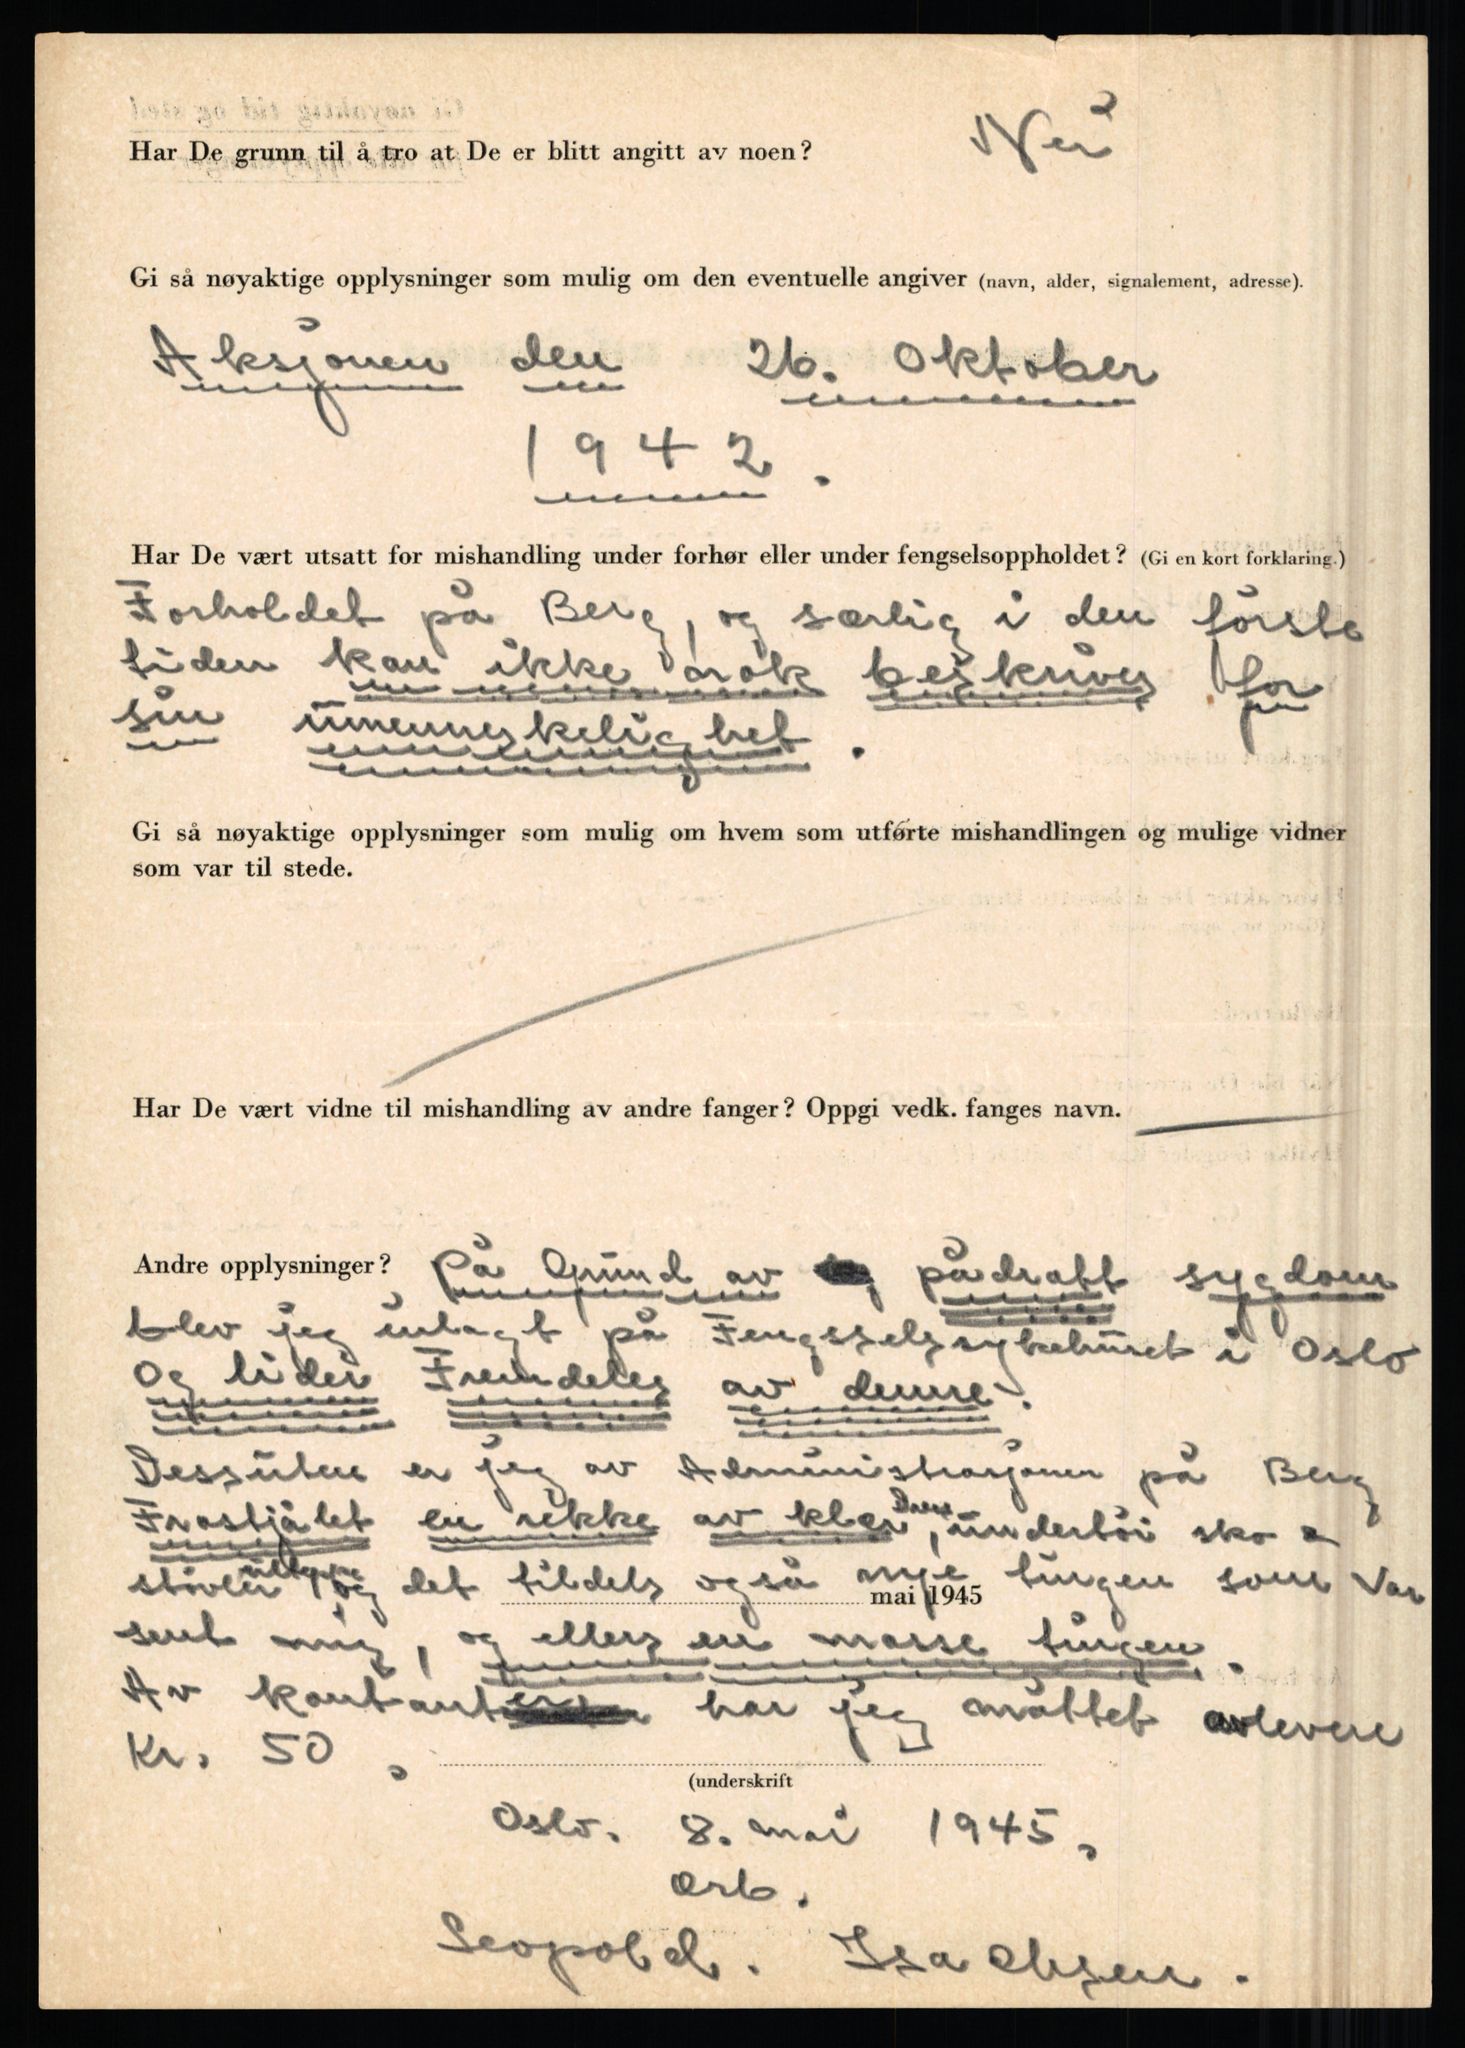 Har De grunn til å tro at De er blitt angitt av noen? Nei
Gi så nøyaktige opplysninger som mulig om den eventuelle angiver (navn, alder, signalement, adresse).
Aksjonen den 26. Oktober
1942.
Har De vært utsatt for mishandling under forhør eller under fengselsoppholdet? (Gi en kort forklaring.)
Forholdet på Berg, og særlig i den förste
tiden kan ikke nok beskrives for
sin umenneskelighet.
Gi så nøyaktige opplysninger som mulig om hvem som utførte mishandlingen og mulige vidner
som var til stede.
Har De vært vidne til mishandling av andre fanger? Oppgi vedk. fanges navn.
Andre opplysninger? På Grund av pådratt sygdom
blev jeg inlagt på Fengsselssykehuset i Oslo
Og lider Fremdeles av denne.
Dessuten er jeg av Administrasjonen på Berg
Frastjålet en rekke av klær, undertöi sko
stövler og det tildels også nye tingen som var
mai 1945
sent mig, og ellers en masse tingen.
Av kontanter har jeg måttet avlevere
Kr. 50.
(underskrift
Oslo. 8. mai 1945.
Arb.
Leopold. Isachsen.